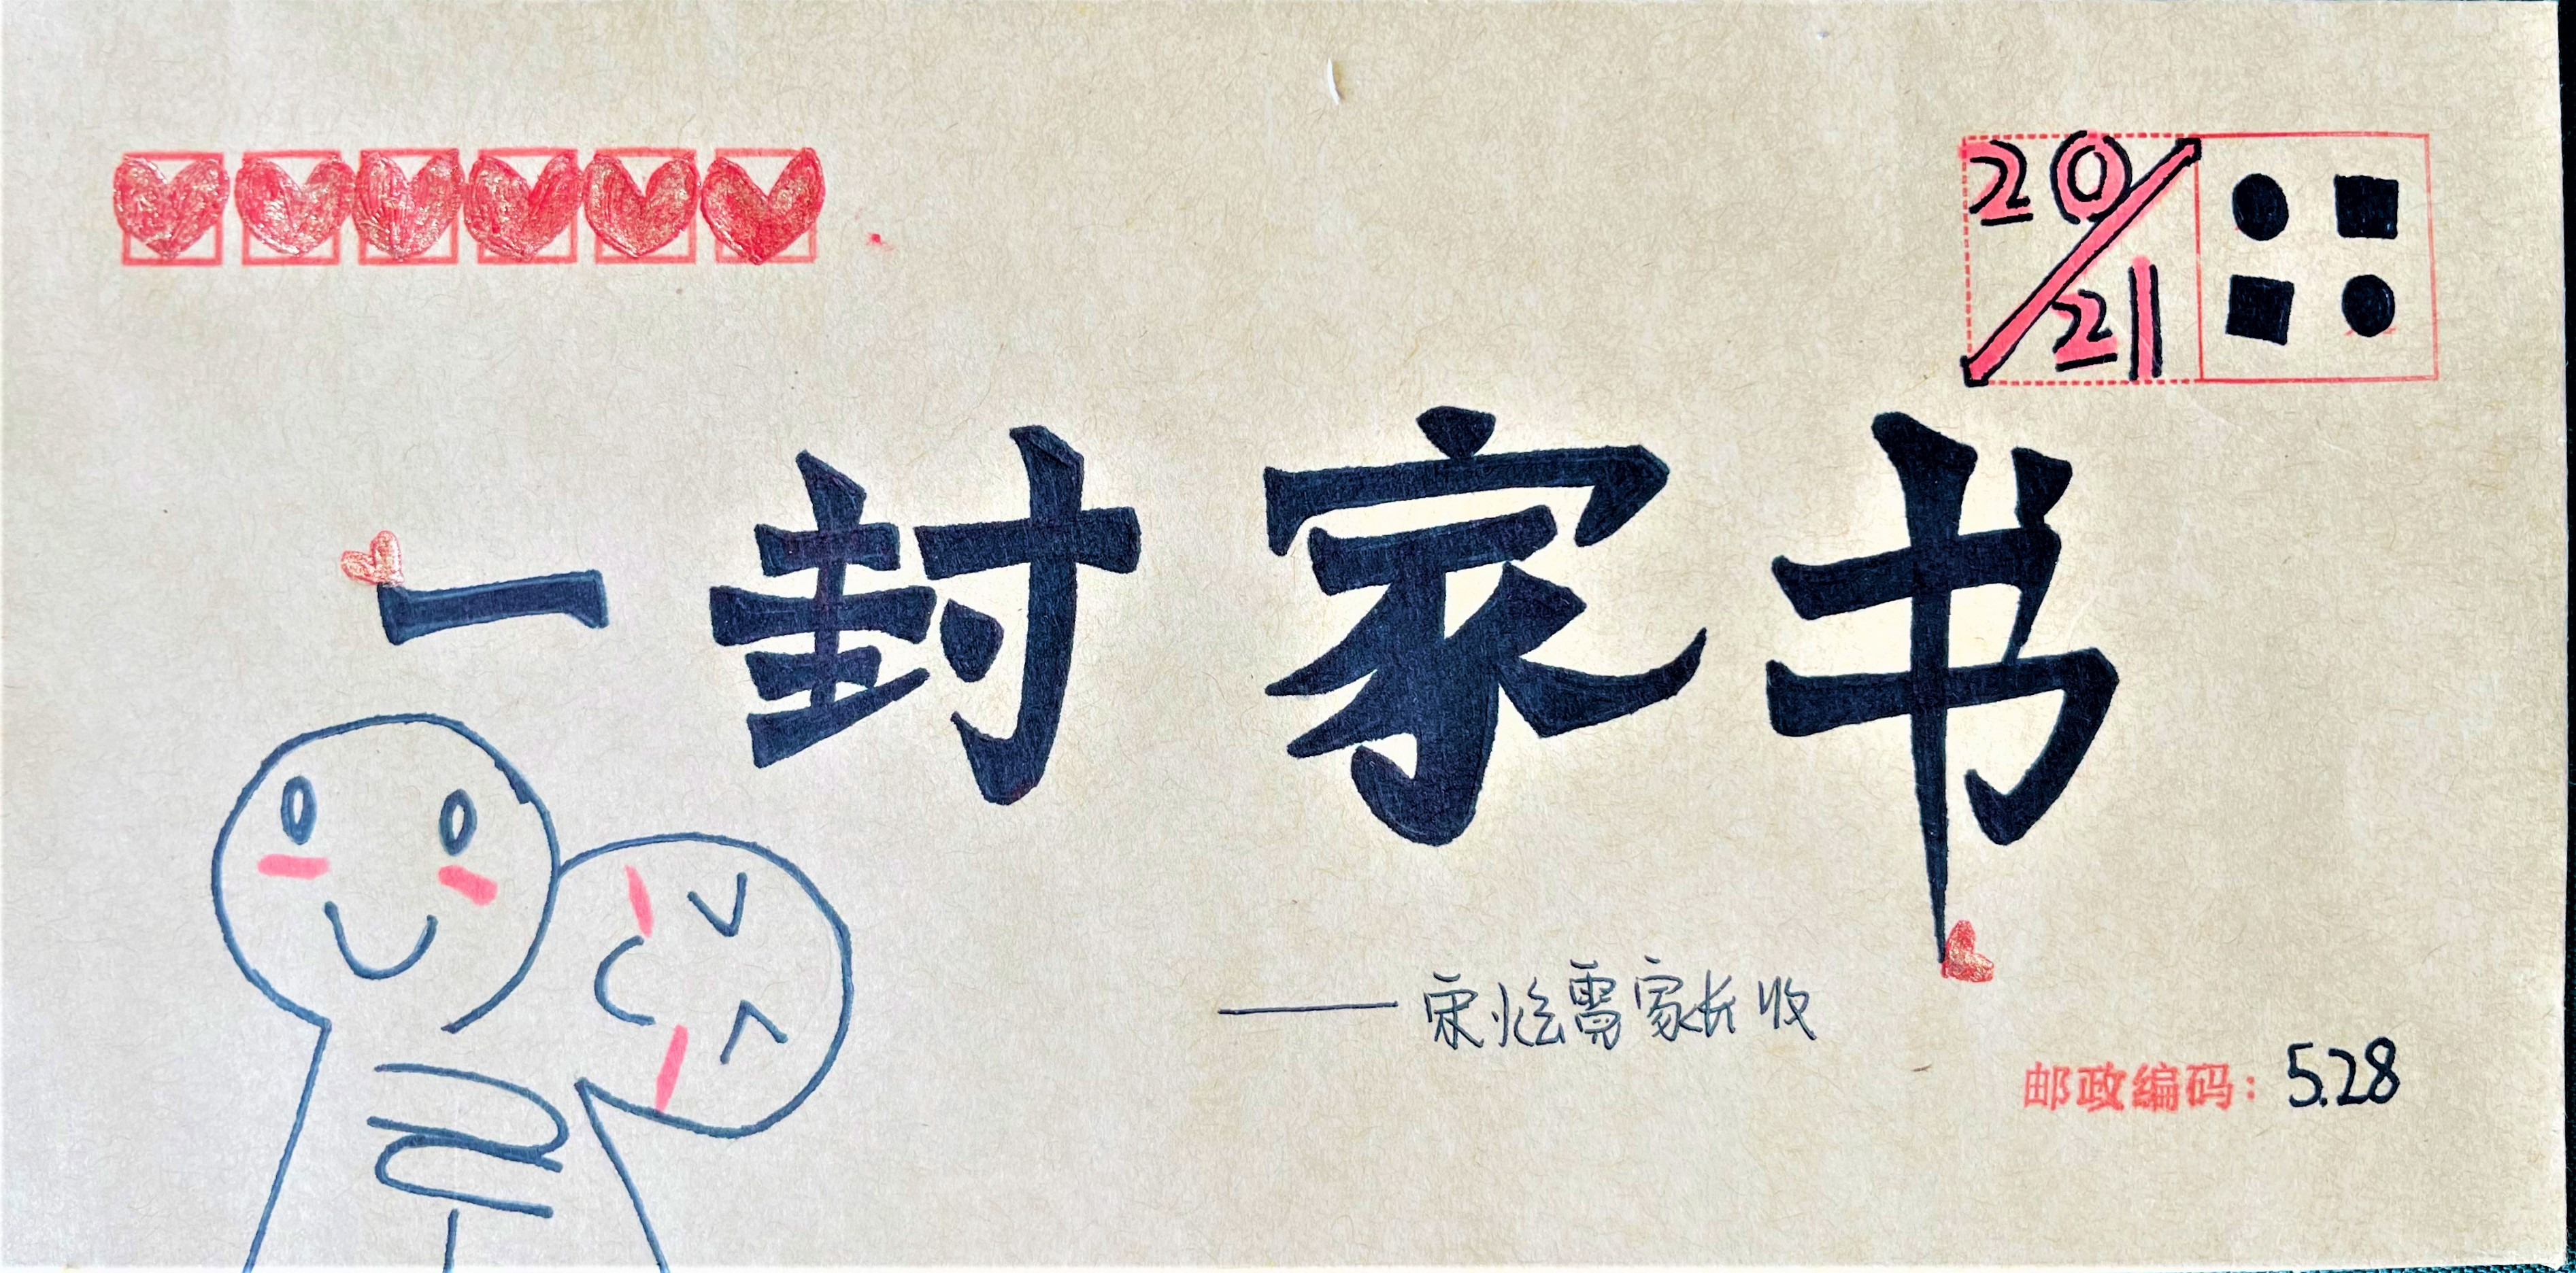 20/21
一封家书
——宋炫霄家长收
邮政编码：5.28